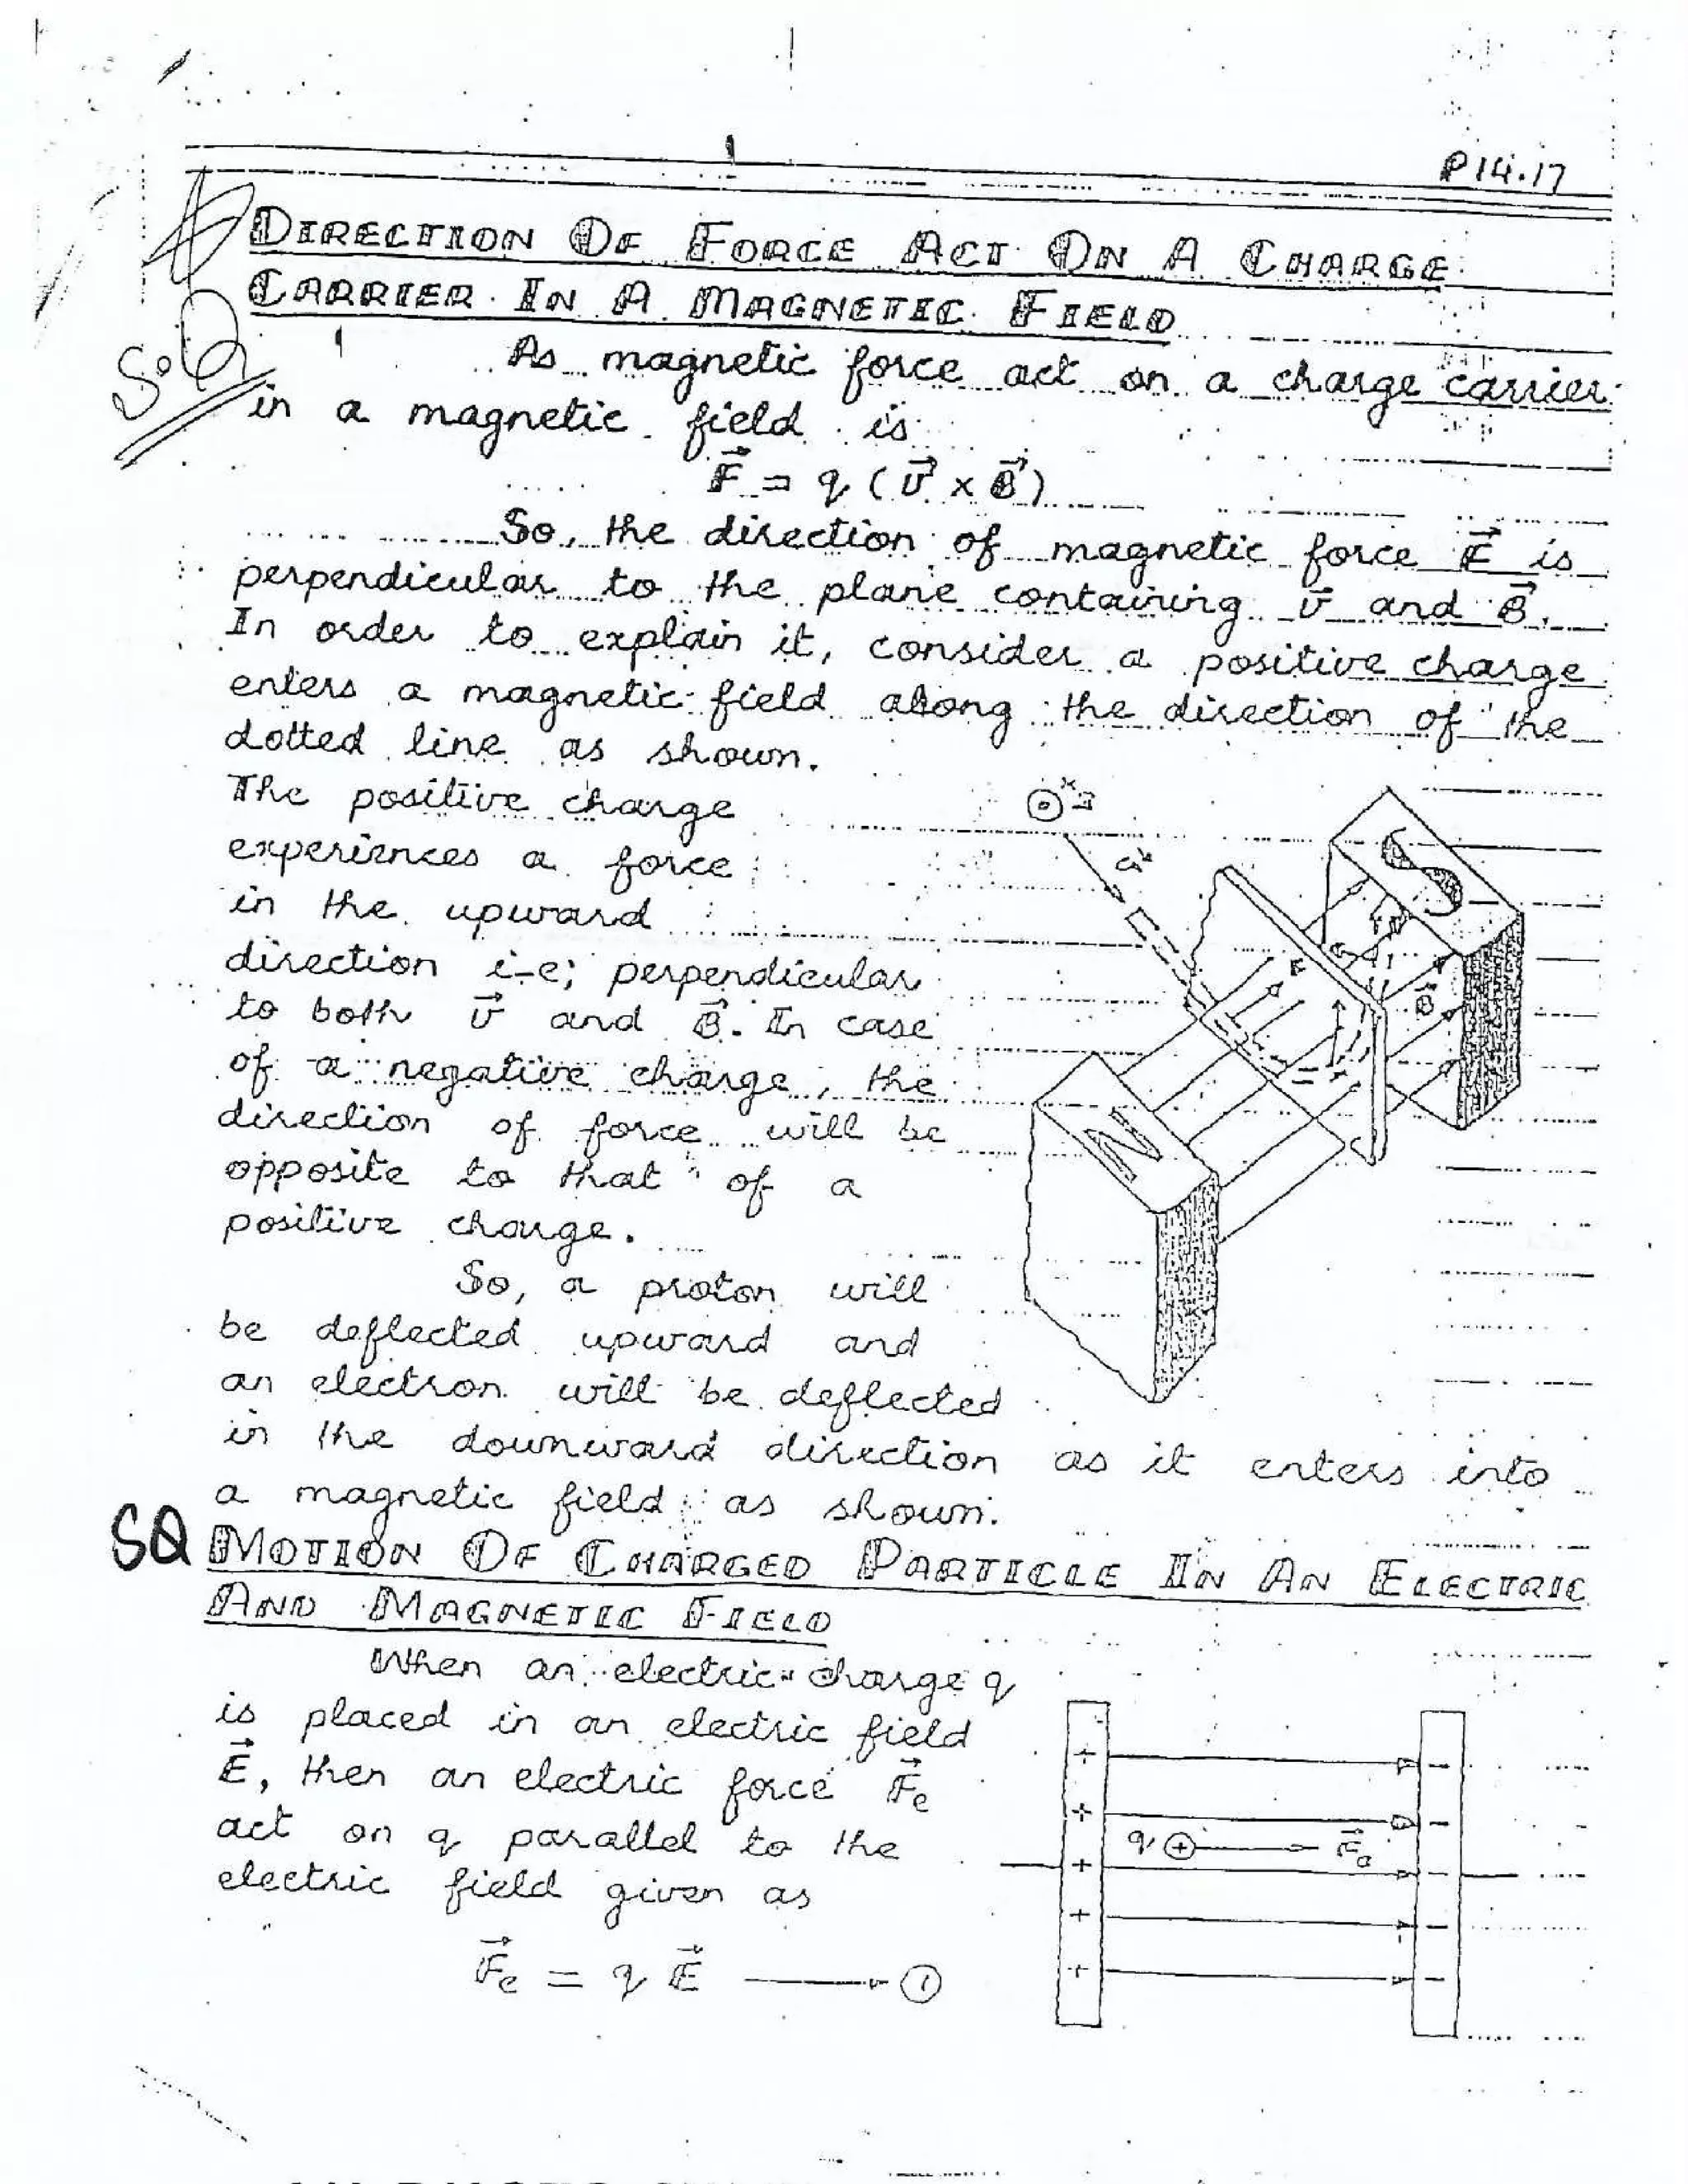 P14.17
DIRECTION OF FORCE ACT ON A CHARGE
CARRIER IN A MAGNETIC FIELD
S.Q
As magnetic force act on a charge carrier
in a magnetic field is
F⃗ = q (v⃗ × B⃗)
So, the direction of magnetic force F⃗ is
perpendicular to the plane containing v⃗ and B⃗.
In order to explain it, consider a positive charge
enters a magnetic field along the direction of the
dotted line as shown.
The positive charge
experiences a force
in the upward
direction i-e; perpendicular
to both v⃗ and B⃗. In case
of a negative charge, the
direction of force will be
opposite to that of a
positive charge.
So, a proton will
be deflected upward and
an electron will be deflected
in the downward direction as it enters into
a magnetic field as shown.
S
B⃗
N
SQ MOTION OF CHARGED PARTICLE IN AN ELECTRIC
AND MAGNETIC FIELD
When an electric charge q
is placed in an electric field
E⃗, then an electric force F⃗e
act on q parallel to the
electric field given as
F⃗e = q E⃗ ⟶ ①
+ −
+ −
q ⊕ ⟶ F⃗e
+ −
+ −
+ −